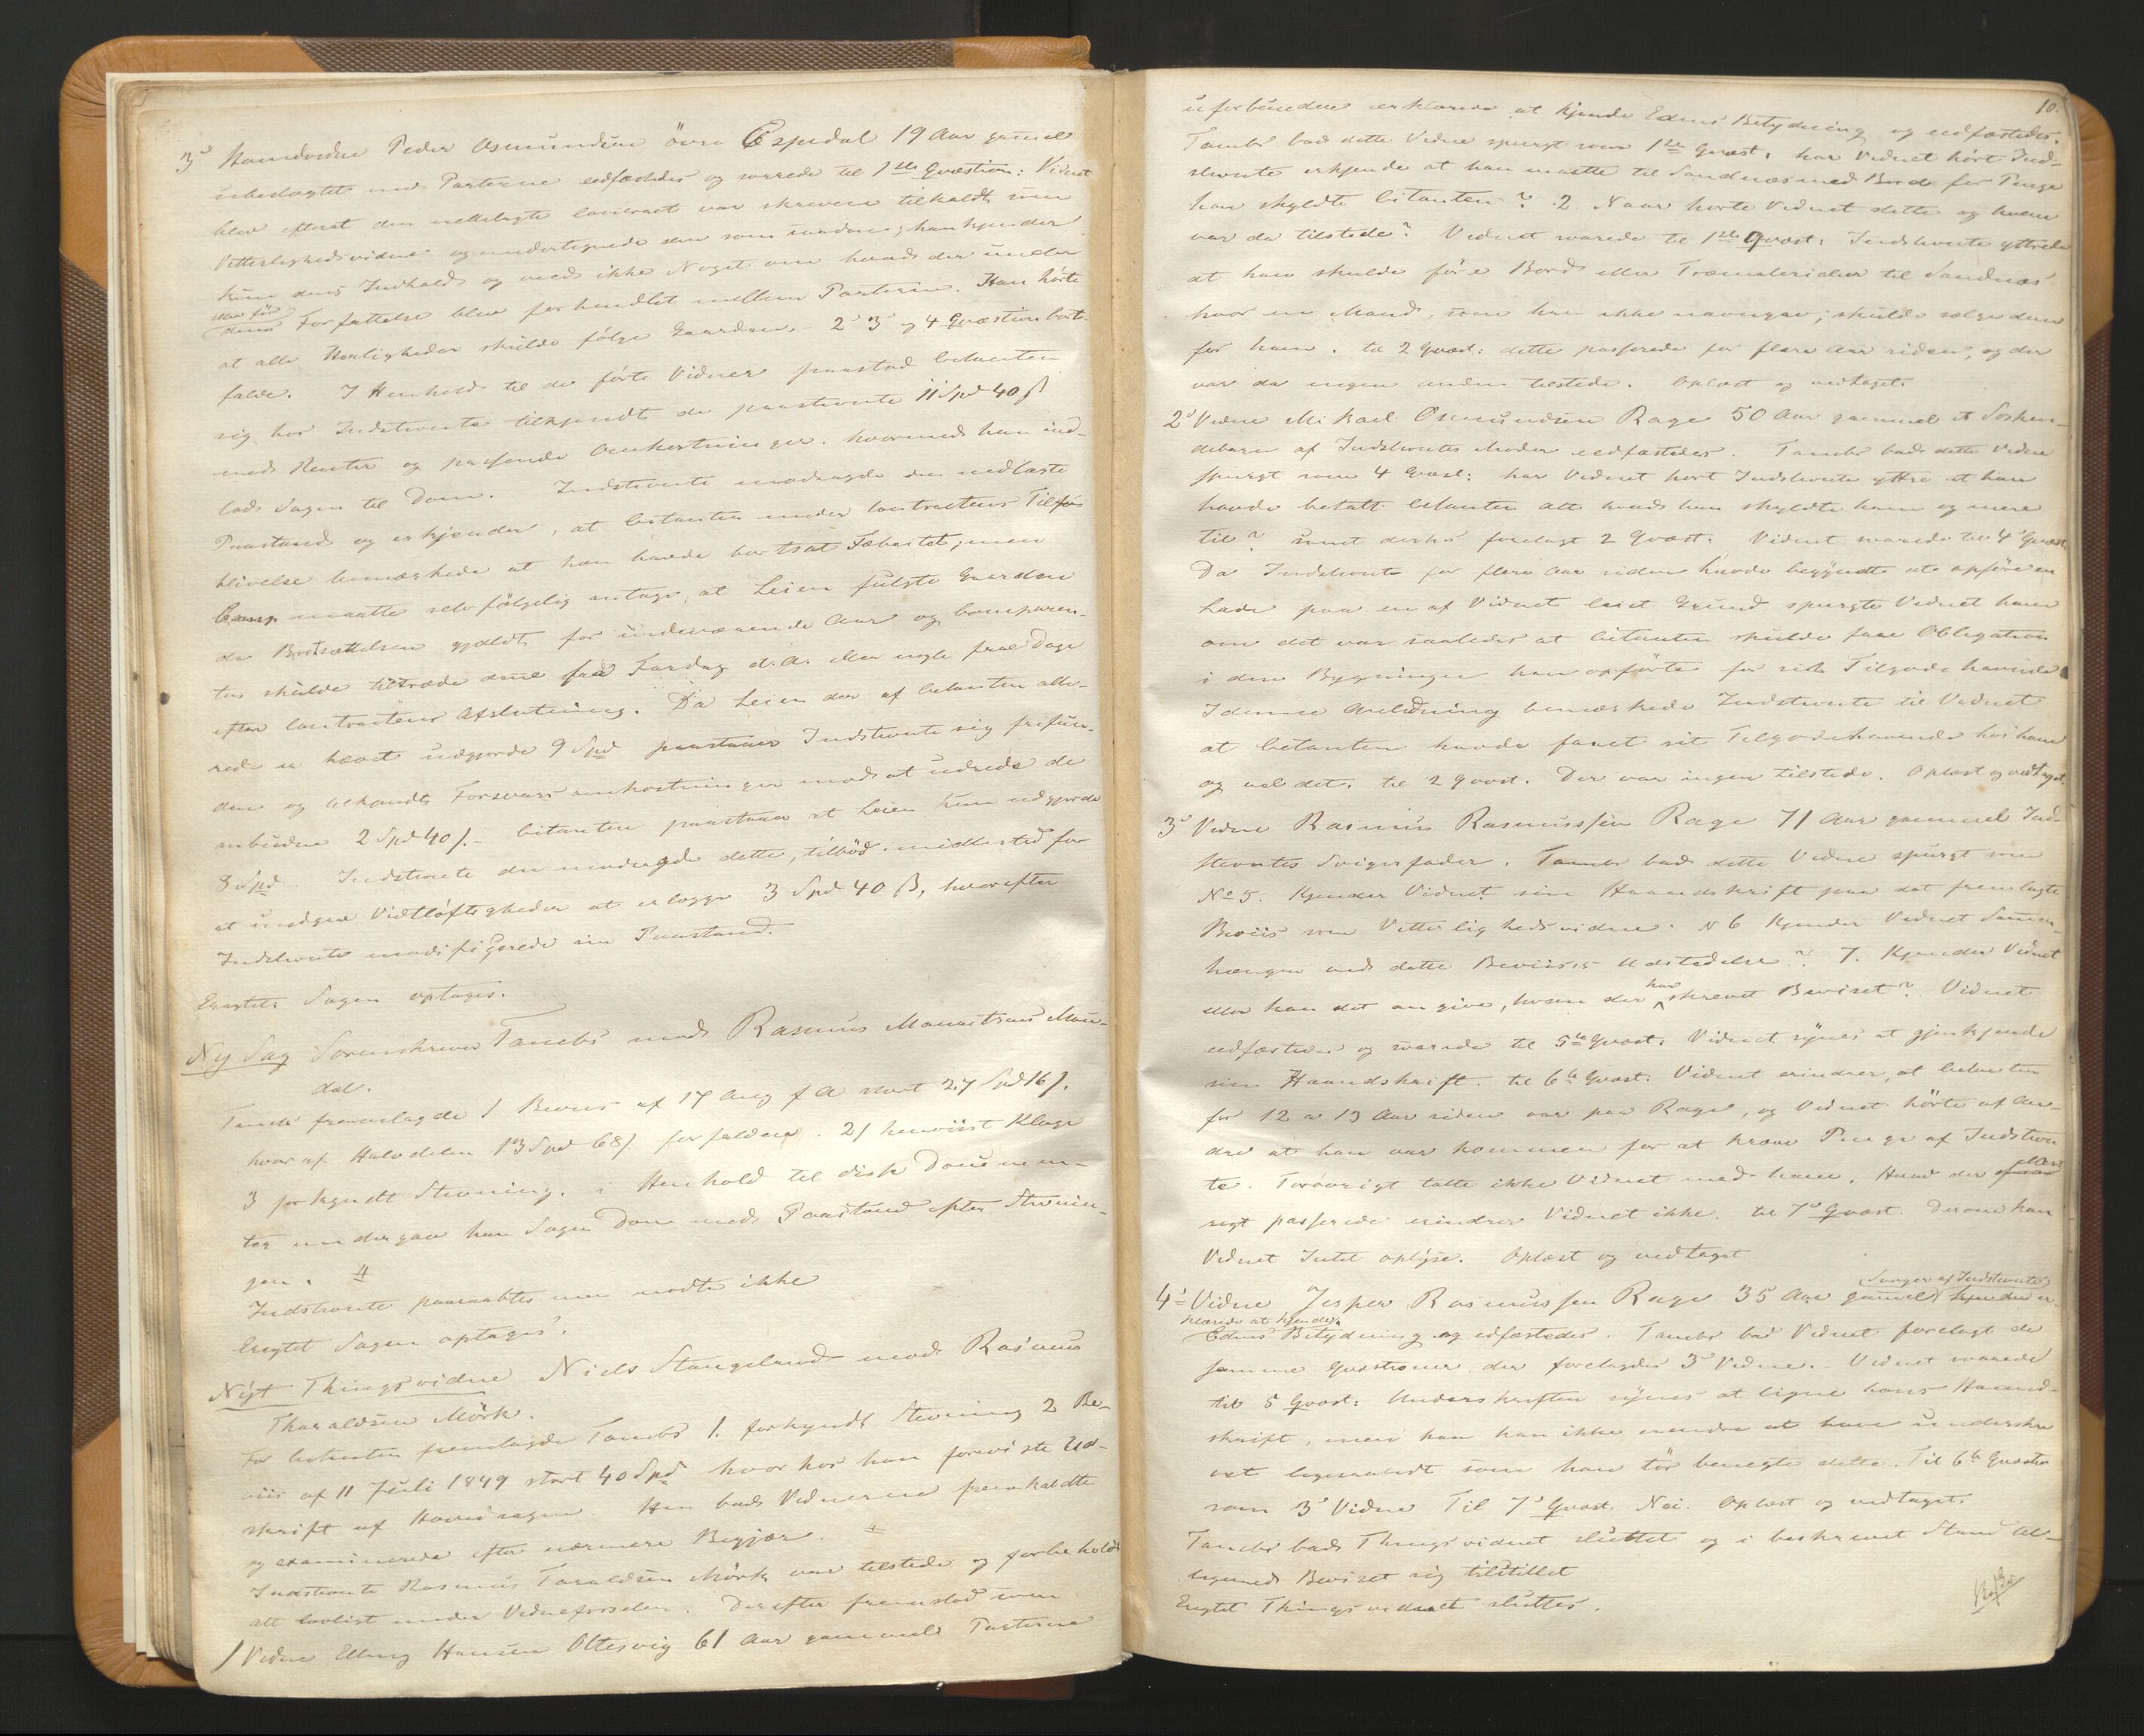 3' Peder Osmundsen övre Espedal 19 Aar gamel
ubeslægtet med Parterne edfæstedes og svarede til 1ste Qvæstion: Vidnet
blev efterat den nedlagte Contract var skreven tilkaldt som
Vitterlighedsvidne og undertegnede den som saadan, han kjender
kun dens Indhold og veed ikke Noget om hvad der under
eller før
dens Forfattelse blev forhandlet mellem Parterne. Han hörte
at alle Herligheder skulde følge Gaarden. 2' 3' og 4 Qvæstion bort-
falde. I Henhold til de førte Vidner paastod Citanten
sig hos Indstevnte tilkjendt de paastevnte 11 Spd 40 ß
med Renter og passende Omkostninger. hvormed han ind-
lod Sagen til Dom. Indstevnte modsagde den nedlagte
Paastand og erkjender, at Citanten under Contractens Tilfør-
blivelse bemærkede at han havde bortsat Fæbeitet; men
Comp. maatte selvfølgelig antage, at Leien fulgte Gaarden
da Bortsættelsen gjaldt for indeværende Aar og Comparen-
ten skulde tiltræde den fra Fardag d.A. eller nogle faae Dage
efter Contractens Afslutning. Da Leien der af Citanten alle-
rede er hævet udgjorde 9 Spd paastaaer Indstevnte sig frifun-
den og tilkjendt Forsvarsomkostninger mod at udrede de
anbudne 2 Spd 40 ß. Citanten paastaaer at Leien kun udgjorde
8 Spd. Indstevnte der modsagde dette, tilbød imidlertid for
at undgaae Vidtløftigheder at erlægge 3 Spd 40 ß, hvorefter
Indstevnte modificerede sin Paastand.
Eragtet: Sagen optages.
Ny Sag Sorenskriver Tambs mod Rasmus Mauritsens Mau-
dal.
Tambs fremlagde 1 Beviis af 17 Aug f A stort 27 Spd 16 ß.
hvoraf Halvdelen 13 Spd 68 ß forfalden. 2/ henviist Klage
3 forkyndt Stevning. i Henhold til disse Documen-
ter undergav han Sagen Dom med Paastand efter Stevnin-
gen.
Indstevnte paaraabtes men mødte ikke
Eragtet Sagen optages.
Nyt Thingsvidne Niels Stangeland mod Rasmus
Tharaldsen Mörk.
For Citanten fremlagde Tambs 1. forkyndt Stevning 2 Be-
viis af 11 Juli 1849 stort 40 Spd hvorhos han foreviste Ud-
skrift af Hovedsagen. Han bad Vidnerne fremkaldte
og examinerede efter nærmere Begjær.
Indstevnte Rasmus Taraldsen Mörk var tilstede og forbeholdt
alt lovligt under Vidneførselen. Derefter fremstod som
1 Vidne Elling Hansen Oltesvig 61 Aar gammel Parterne
10.
uforbunden erklærede at kjende Edens Betydning og edfæstedes.
Tambs bad dette Vidne spurgt som 1ste Qvæst. har Vidnet hört Ind-
stevnte erkjende at han maatte til Sandnæs med Bord for Penge
han skyldte Citanten? 2. Naar hørte Vidnet dette og hvem
var da tilstede? Vidnet svarede til 1ste Qvæst: Indstevnte yttrede
at han skulde føre Bord eller Træmaterialier til Sandnæs
hvor en Mand, som han ikke navngav; skulde sælge dem
for ham. til 2 Qvæst: dette passerede for flere Aar siden, og der
var da ingen anden tilstede. Oplæst og vedtaget.
2' Vidne Mikael Osmundsen Rage 50 Aar gammel et Søsken-
debarn af Indstevntes Moder edfæstedes. Tambs bad dette Vidne
spurgt som 4 Qvæst: har Vidnet hørt Indstevnte yttre at han
havde betalt Citanten alt hvad han skyldte ham og mere
til? samt derhos forelagt 2 Qvæst: Vidnet svarede til 4' Qvæst:
Da Indstevnte for flere Aar siden havde begyndt at opføre en
Lade paa en af Vidnet leiet Grund spurgte Vidnet ham
om det var saaledes at Citanten skulde faae Obligation
i den Bygninger han opførte for sit Tilgodehavende
I denne Anledning bemærkede Indstevnte til Vidnet
at Citanten havde faaet sit Tilgodehavende hos ham
og vel det. til 2 Qvæst. Der var ingen tilstede. Oplæst og vedtaget.
3' Vidne Rasmus Rasmussen Rage 71 Aar gammel Ind-
stevntes Svigerfader. Tambs bad dette Vidne spurgt som
No 5. Kjender Vidnet sin Haandskrift paa det fremlagte
Beviis som Vitterlighedsvidne. N 6 Kjender Vidnet Samen-
hængen ved dette Beviises Udstedelse? 7. Kjender Vidnet
har
eller kan det angive, hvem der skrevet Beviset? Vidnet
edfæstedes og svarede til 5te Qvæst: Vidnet synes at gjenkjende
sin Haandskrift. til 6te Qvæst: Vidnet erindrer, at Citanten
for 12 a 13 Aar siden var paa Rage, og Vidnet hörte af An-
dre at han var kommen for at kræve Penge af Indstevn
te. Forøvrigt talte ikke Vidnet med ham. Hvad der
rigt passerede erindrer Vidnet ikke. til 7' Qvæst. Derom kan
Vidnet Intet oplyse. Oplæst og vedtaget
Svoger af Indstevnte
4' Vidne Jesper Rasmussen Rage 35 Aar gamel er-
klærede at kjende
Edens Betydning og edfæstedes. Tambs bad Vidnet forelagt de
samme Qvæstioner der forelagdes 3' Vidne. Vidnet svarede
til 5 Qvæst: Underskriften synes at ligne hans Haand-
skrift, men han kan ikke erindre at have underskre
vet ligesaalidt som han tör benegte dette. Til 6te Qvæstion
som 3' Vidne Til 7' Qvæst. Nei. Oplæst og vedtaget.
Tambs bad Thingsvidnet sluttet og i beskrevet Stand til-
ligemed Beviset sig tilstillet
Eragtet Thingsvidnet sluttes.